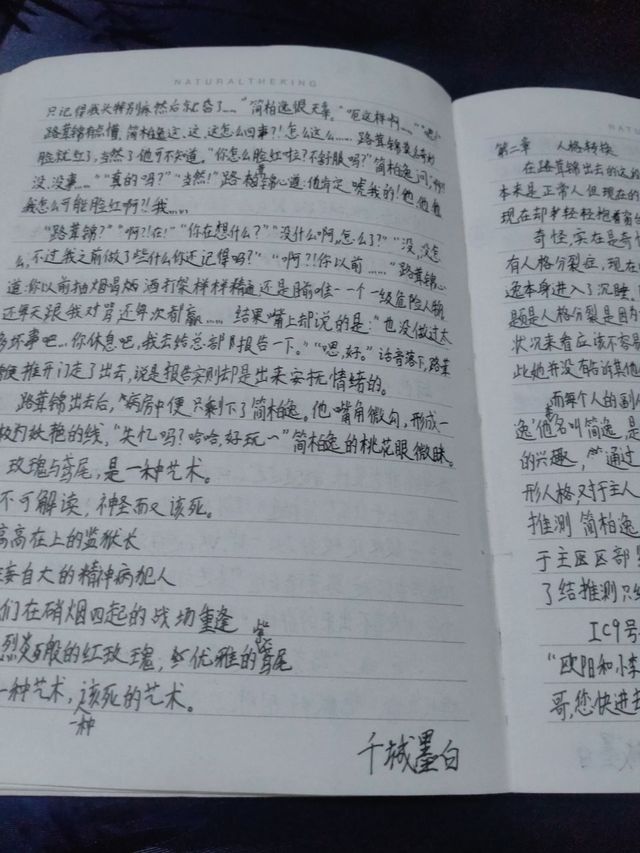 NATURALTHEKING
只记得我头特别疼然后就昏了……”简柏逸很无辜。“呃这样啊……”“嗯”
路茸锦有点懵,简柏逸这、这、这怎么回事?!怎么这么……路茸锦
脸就红了,当然了他可不知道。“你怎么脸红啦?不舒服吗?”简柏逸问,
没、没事……”“真的吗?”“当然!”路茸锦心道:他肯定唬我的!他、他
我怎么可能脸红啊?!我……
“路茸锦?”“啊?!在!”“你在想什么?”“没什么啊,怎么了?”“没,没怎
么,不过我之前做了些什么你还记得吗?”“啊?!你以前……”路茸锦心
道:你以前抽烟喝烟酒打架样样精通还是目前唯一一个一级危险人物
还每天跟我对骂还每次都赢……结果嘴上却说的是:“也没做过太
多坏事吧…你休息吧,我去给总部报告一下。”“嗯,好。”话音落下,路茸
便推开门走了出去,说是报告实则却是出来安抚情绪的。
路茸锦出去后,病房中便只剩下了简柏逸。他嘴角微勾,形成一
极妖艳的线,“失忆吗?哈哈,好玩~”简柏逸的桃花眼微眯。
玫瑰与鸢尾,是一种艺术。
不可解读,神圣而又该死。
高高在上的监狱长
妄自大的精神病犯人
们在硝烟四起的战场重逢
烈炎般的红玫瑰,紫优雅的鸢尾
一种艺术,该死的艺术。
一种
千城墨白
第二章 人格转换
在路茸锦出去的
本来是正常人但现在的
现在却手轻轻抱着
奇怪,实在是奇
有人格分裂症,现在
逸本身进入了沉睡
题是人格分裂是因为
状况来看应该不容易
此她并没有告诉其他
而每个人的副人
逸’他名叫简逸,是
的兴趣,通过
形人格,对于主人
推测 简柏逸
于主区区部
了结推测只
IC9号
“欧阳和小李
哥,您快进去